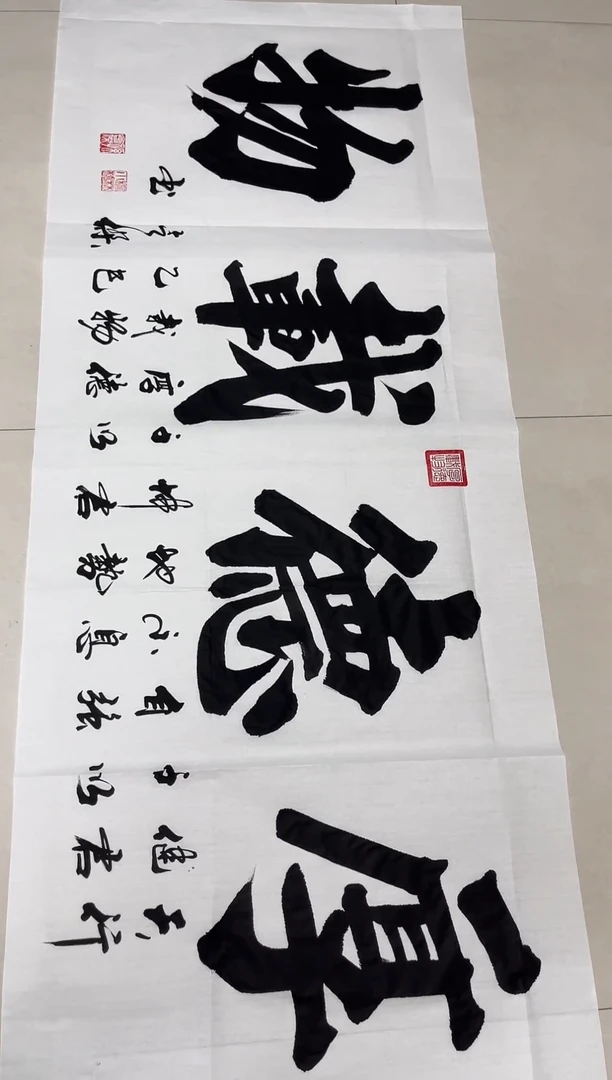 厚德載物
天行
健君
子以
自强
不息
地勢
坤君
子以
厚德
載物
乙巳
书